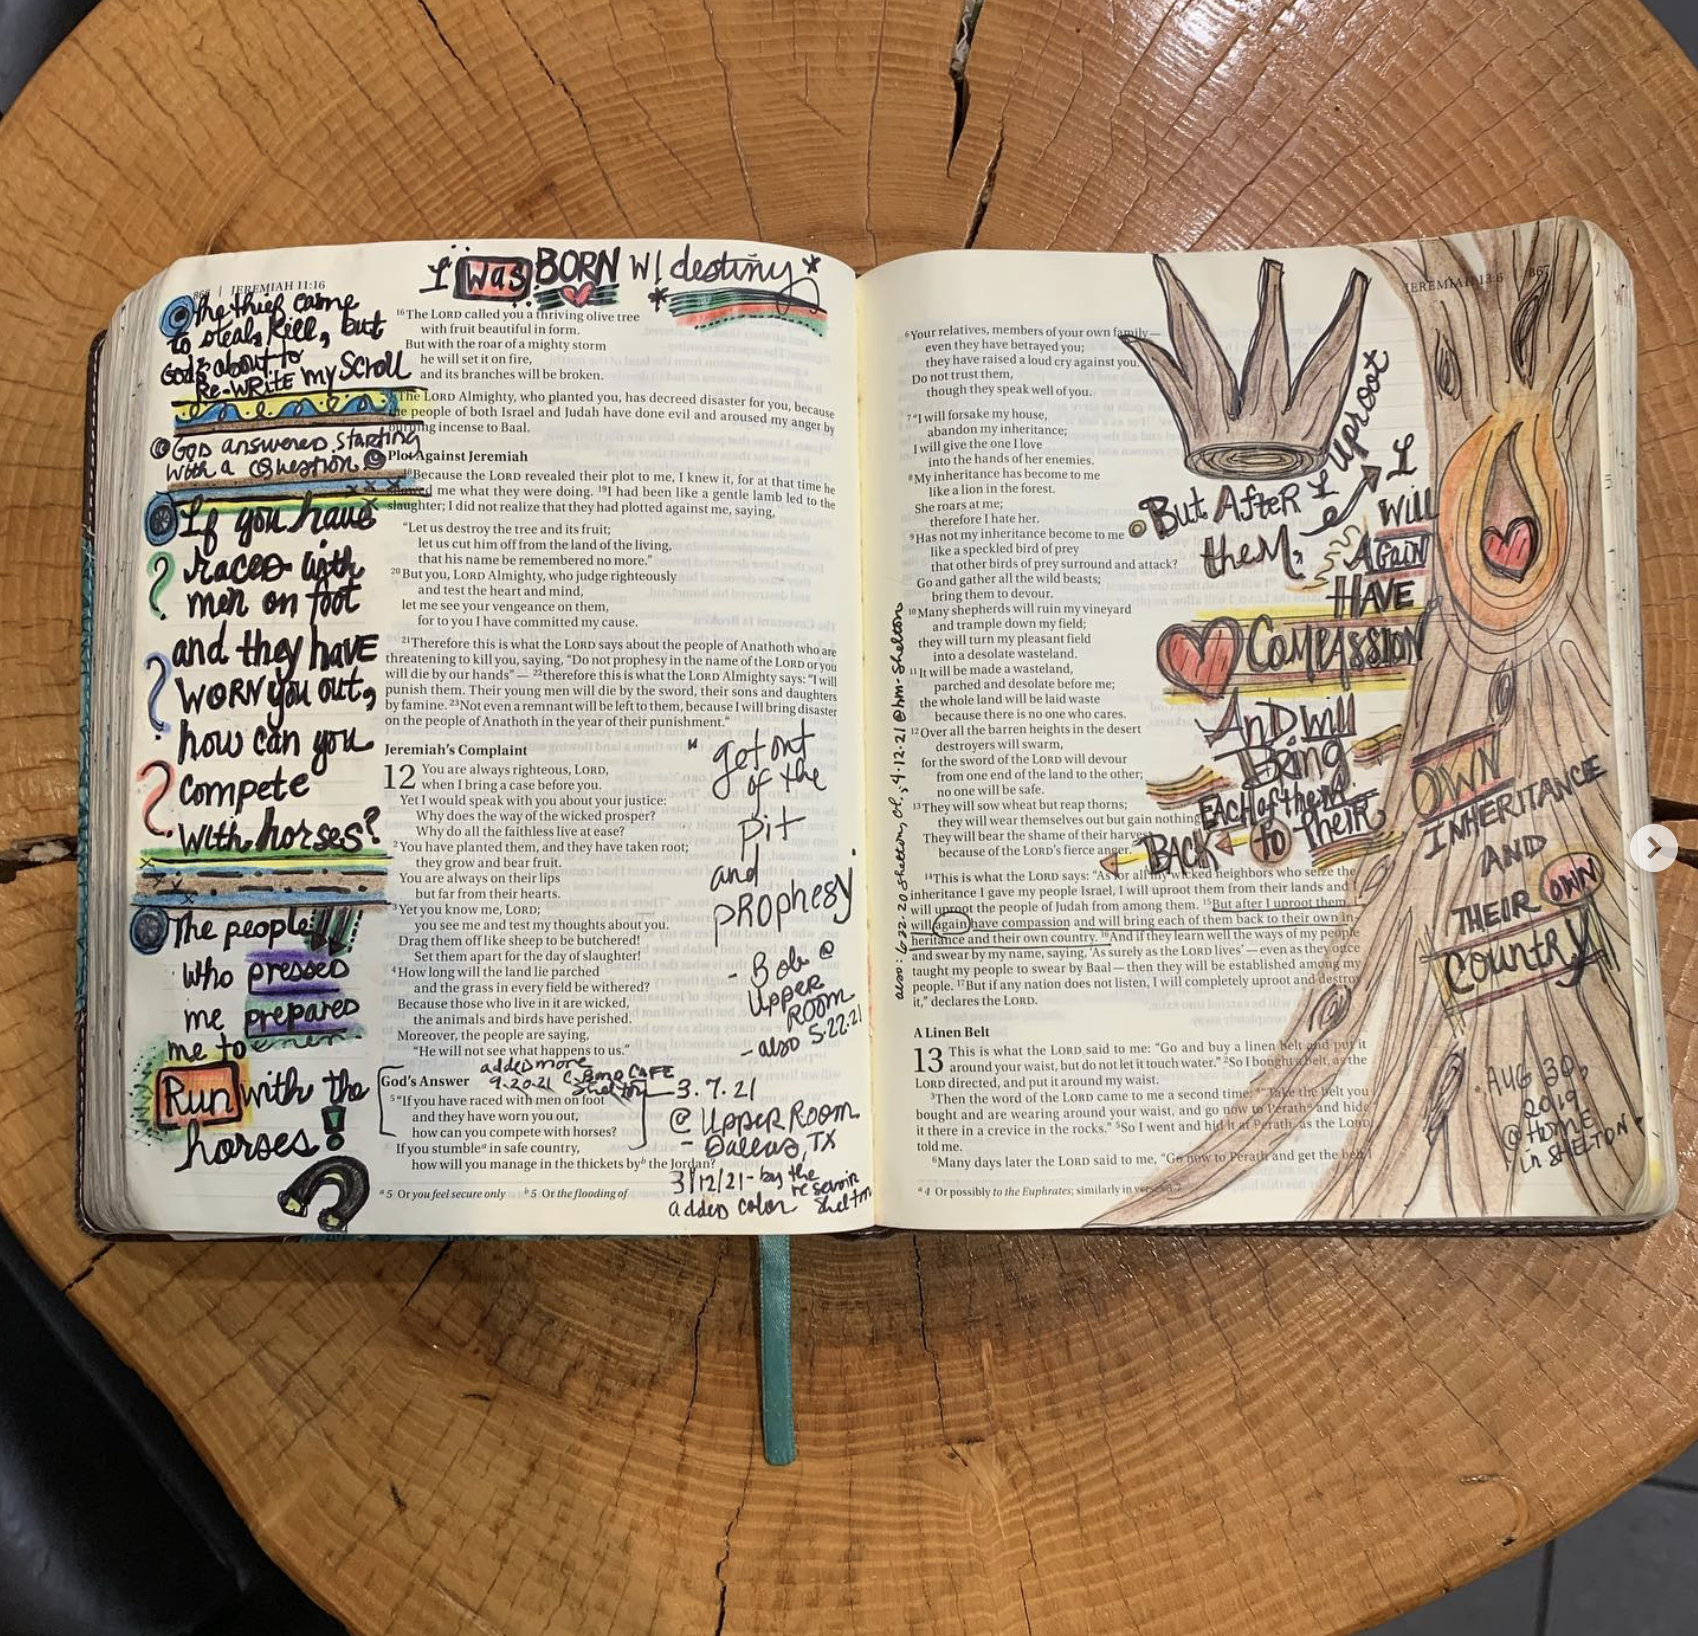 I was BORN W/ destiny *
866 | JEREMIAH 11:16
The thief came
to steal, kill, but
God's about to
Re-WRITE my Scroll
GOD answered starting
with a Question
If you have
raced with
men on foot
and they have
WORN you out,
how can you
compete
with horses?
The people
who pressed
me prepared
me to
Run with the
horses!
?
16 The LORD called you a thriving olive tree
with fruit beautiful in form.
But with the roar of a mighty storm
he will set it on fire,
and its branches will be broken.
The LORD Almighty, who planted you, has decreed disaster for you, because
the people of both Israel and Judah have done evil and aroused my anger by
burning incense to Baal.
Plot Against Jeremiah
18 Because the LORD revealed their plot to me, I knew it, for at that time he
showed me what they were doing. 19 I had been like a gentle lamb led to the
slaughter; I did not realize that they had plotted against me, saying,
“Let us destroy the tree and its fruit;
let us cut him off from the land of the living,
that his name be remembered no more.”
20 But you, LORD Almighty, who judge righteously
and test the heart and mind,
let me see your vengeance on them,
for to you I have committed my cause.
21 Therefore this is what the LORD says about the people of Anathoth who are
threatening to kill you, saying, “Do not prophesy in the name of the LORD or you
will die by our hands” — 22 therefore this is what the LORD Almighty says: “I will
punish them. Their young men will die by the sword, their sons and daughters
by famine. 23 Not even a remnant will be left to them, because I will bring disaster
on the people of Anathoth in the year of their punishment.”
Jeremiah’s Complaint
12 You are always righteous, LORD,
when I bring a case before you.
Yet I would speak with you about your justice:
Why does the way of the wicked prosper?
Why do all the faithless live at ease?
2 You have planted them, and they have taken root;
they grow and bear fruit.
You are always on their lips
but far from their hearts.
3 Yet you know me, LORD;
you see me and test my thoughts about you.
Drag them off like sheep to be butchered!
Set them apart for the day of slaughter!
4 How long will the land lie parched
and the grass in every field be withered?
Because those who live in it are wicked,
the animals and birds have perished.
Moreover, the people are saying,
“He will not see what happens to us.”
God’s Answer
5 “If you have raced with men on foot
and they have worn you out,
how can you compete with horses?
If you stumble a in safe country,
how will you manage in the thickets by b the Jordan?
a 5 Or you feel secure only b 5 Or the flooding of
"get out
of the
pit
and
PROphesy
- Bob @
Upper
ROOM
- also 5.22.21
added more
9.20.21 @ CAFE
Shelton
3.7.21
@ Upper Room
- Dallas, TX
3/12/21 - by the
reservoir
added color Shelton
JEREMIAH 13:6 | 867
6 Your relatives, members of your own family—
even they have betrayed you;
they have raised a loud cry against you.
Do not trust them,
though they speak well of you.
7 “I will forsake my house,
abandon my inheritance;
I will give the one I love
into the hands of her enemies.
8 My inheritance has become to me
like a lion in the forest.
She roars at me;
therefore I hate her.
9 Has not my inheritance become to me
like a speckled bird of prey
that other birds of prey surround and attack?
Go and gather all the wild beasts;
bring them to devour.
10 Many shepherds will ruin my vineyard
and trample down my field;
they will turn my pleasant field
into a desolate wasteland.
11 It will be made a wasteland,
parched and desolate before me;
the whole land will be laid waste
because there is no one who cares.
12 Over all the barren heights in the desert
destroyers will swarm,
for the sword of the LORD will devour
from one end of the land to the other;
no one will be safe.
13 They will sow wheat but reap thorns;
they will wear themselves out but gain nothing.
They will bear the shame of their harvest
because of the LORD’s fierce anger.”
14 This is what the LORD says: “As for all my wicked neighbors who seize the
inheritance I gave my people Israel, I will uproot them from their lands and I
will uproot the people of Judah from among them. 15 But after I uproot them, I
will again have compassion and will bring each of them back to their own in-
heritance and their own country. 16 And if they learn well the ways of my people
and swear by my name, saying, ‘As surely as the LORD lives’ — even as they once
taught my people to swear by Baal — then they will be established among my
people. 17 But if any nation does not listen, I will completely uproot and destroy
it,” declares the LORD.
A Linen Belt
13 This is what the LORD said to me: “Go and buy a linen belt and put it
around your waist, but do not let it touch water.” 2 So I bought a belt, as the
LORD directed, and put it around my waist.
3 Then the word of the LORD came to me a second time: 4 “Take the belt you
bought and are wearing around your waist, and go now to Perath a and hide
it there in a crevice in the rocks.” 5 So I went and hid it at Perath, as the LORD
told me.
6 Many days later the LORD said to me, “Go now to Perath and get the belt I
a 4 Or possibly to the Euphrates; similarly in verses
also: 6.22.20 Shelton, ; 4.12.21 @ hm - Shelton
But After I uproot
theM, I
Will
AGAIN
HAVE
COMPASSION
And Will
Bring
EACH of them
BACK to their
OWN
INHERITANCE
AND
THEIR OWN
COUNTRY
AUG 30,
2019
@ HOME
in SHELTON